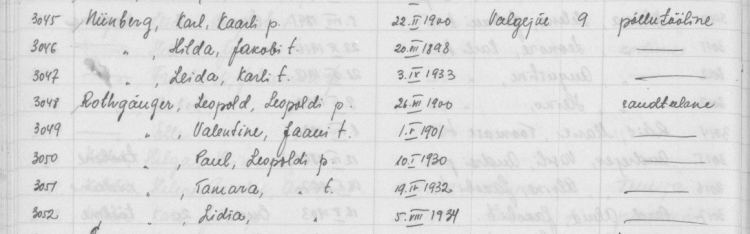 3045 Nünberg, Karl, Kaarli p. 22.II 1900 Valgejõe 9 põllutööline
3046 " , Hilda, Jakobi t. 20.VIII 1898 —
3047 " , Leida, Karli t. 3.IV 1933 —
3048 Rothgänger, Leopold, Leopoldi p. 26.VII 1900 raudteelane
3049 " , Valentine, Jaani t. 1.V 1901 —
3050 " , Paul, Leopoldi p. 10.I 1930 —
3051 " , Tamara, " t. 19.IV 1932 —
3052 " , Lidia, " 5.VIII 1934 —